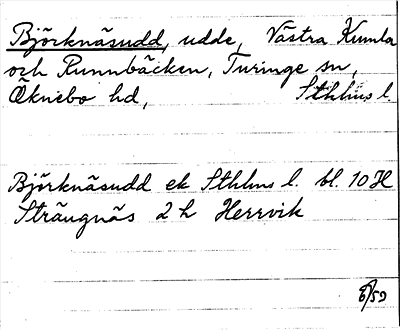 Björknäsudd, udde, Västra Kumla
och Runnbäcken, Turinge sn,
Öknebo hd, Sthlms l.
Björknäsudd ek Sthlms l. bl. 10 H
Strängnäs 2 h Herrvik